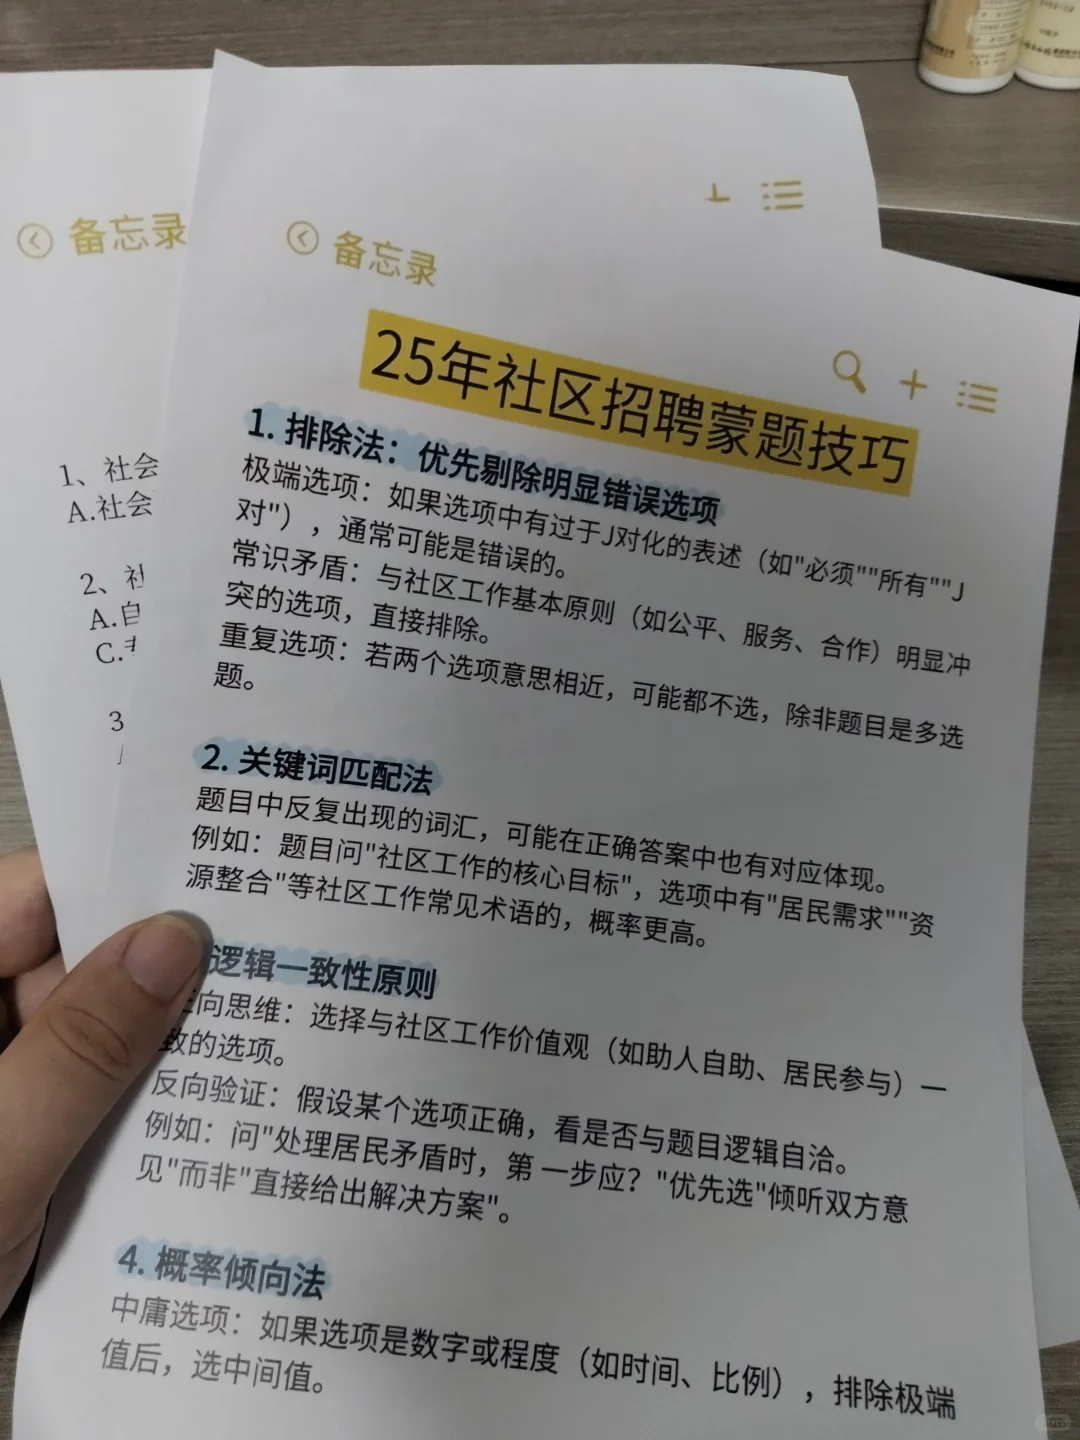 备忘录
1、社会
A.社会
2、社
A.自
C.
3
备忘录
25年社区招聘蒙题技巧
1. 排除法：优先剔除明显错误选项
极端选项：如果选项中有过于J对化的表述（如"必须""所有""J
对"），通常可能是错误的。
常识矛盾：与社区工作基本原则（如公平、服务、合作）明显冲
突的选项，直接排除。
重复选项：若两个选项意思相近，可能都不选，除非题目是多选
题。
2. 关键词匹配法
题目中反复出现的词汇，可能在正确答案中也有对应体现。
例如：题目问"社区工作的核心目标"，选项中有"居民需求""资
源整合"等社区工作常见术语的，概率更高。
逻辑一致性原则
向思维：选择与社区工作价值观（如助人自助、居民参与）一
致的选项。
反向验证：假设某个选项正确，看是否与题目逻辑自洽。
例如：问"处理居民矛盾时，第一步应？"优先选"倾听双方意
见"而非"直接给出解决方案"。
4. 概率倾向法
中庸选项：如果选项是数字或程度（如时间、比例），排除极端
值后，选中间值。